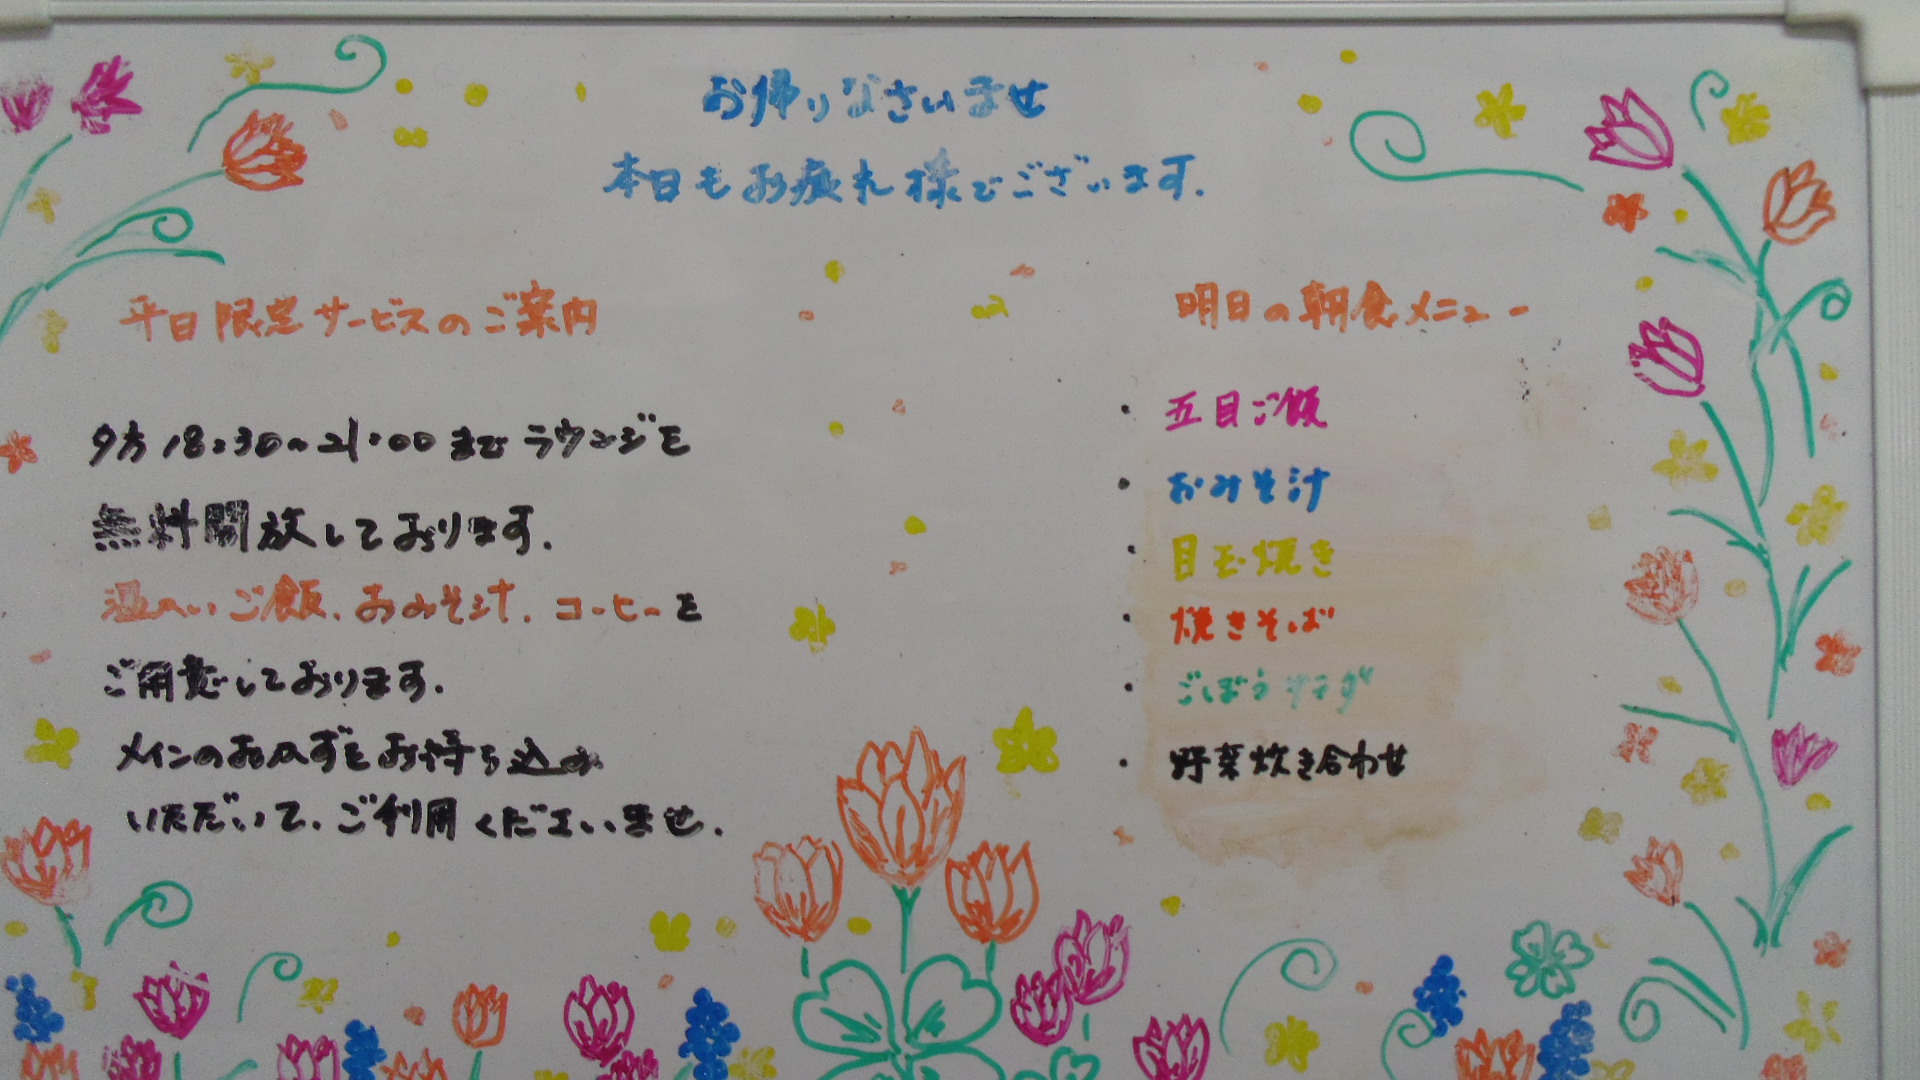 お帰りなさいませ
本日もお疲れ様でございます.
平日限定サービスのご案内
夕方18:30～21:00までラウンジを
無料開放しております.
温かいご飯、おみそ汁、コーヒーを
ご用意しております.
メインのおかずをお持ち込み
いただいて、ご利用くださいませ.
明日の朝食メニュー
・五目ご飯
・おみそ汁
・目玉焼き
・焼きそば
・ごぼうサラダ
・野菜炊き合わせ